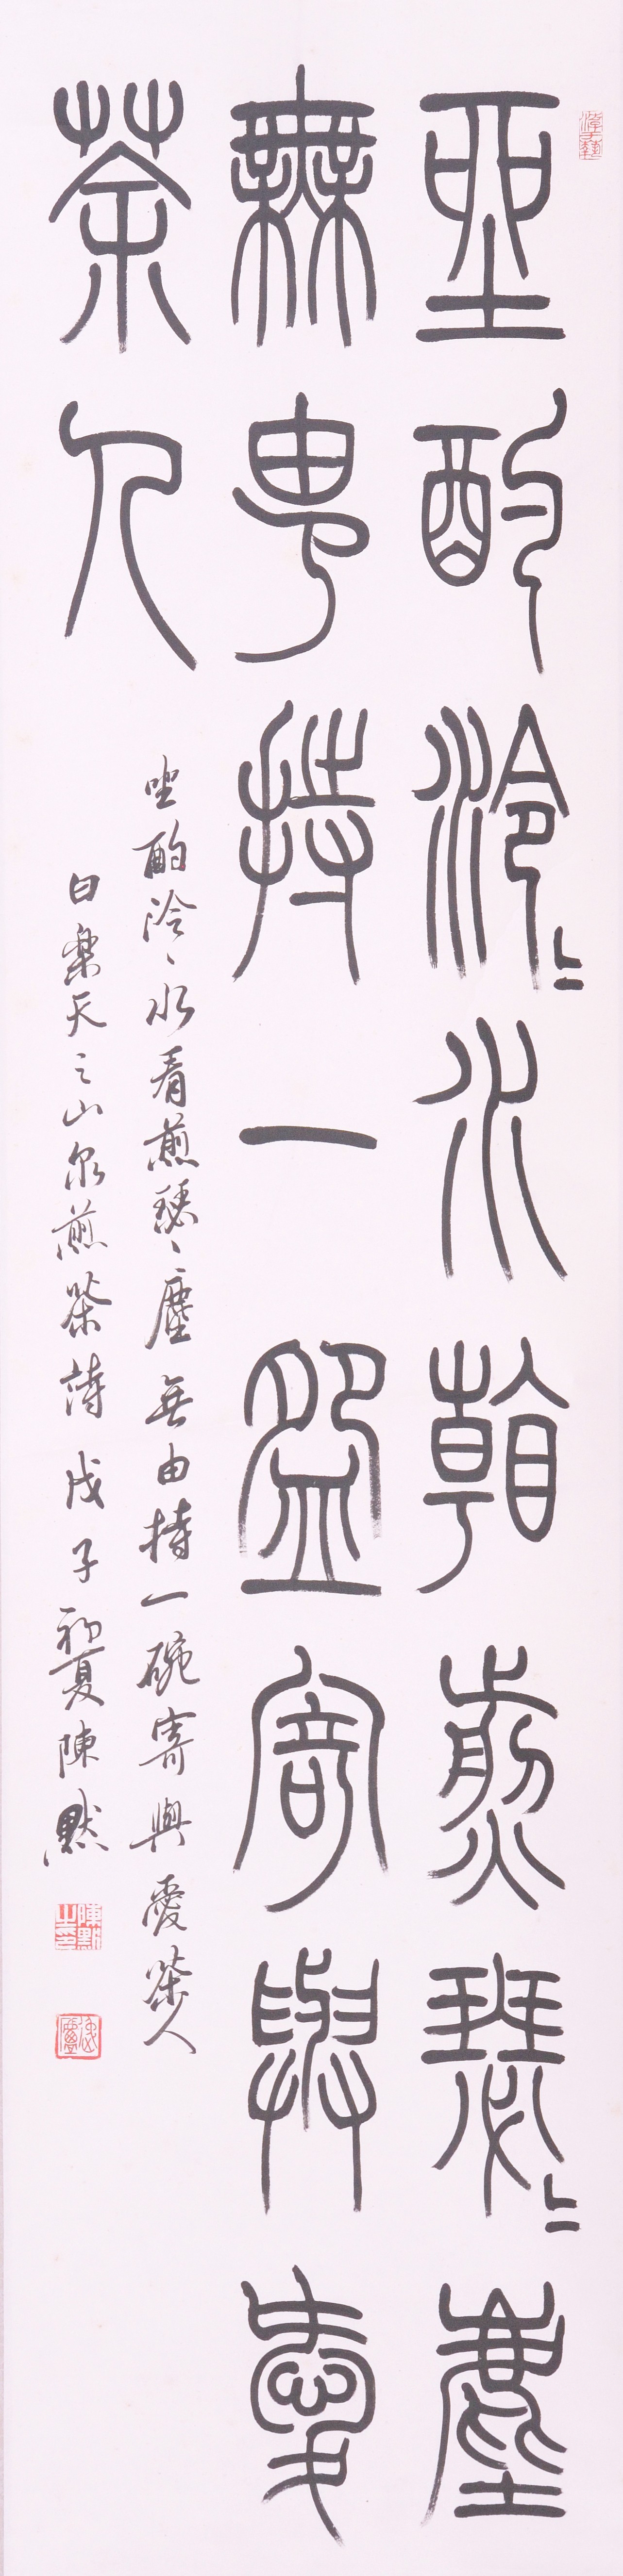 坐酌泠〻水看煎瑟〻塵
無由持一盌寄與愛
茶人
坐酌泠〻水看煎瑟〻塵無由持一碗寄與愛茶人
白樂天之山泉煎茶詩 戊子初夏陳默
陳默之印